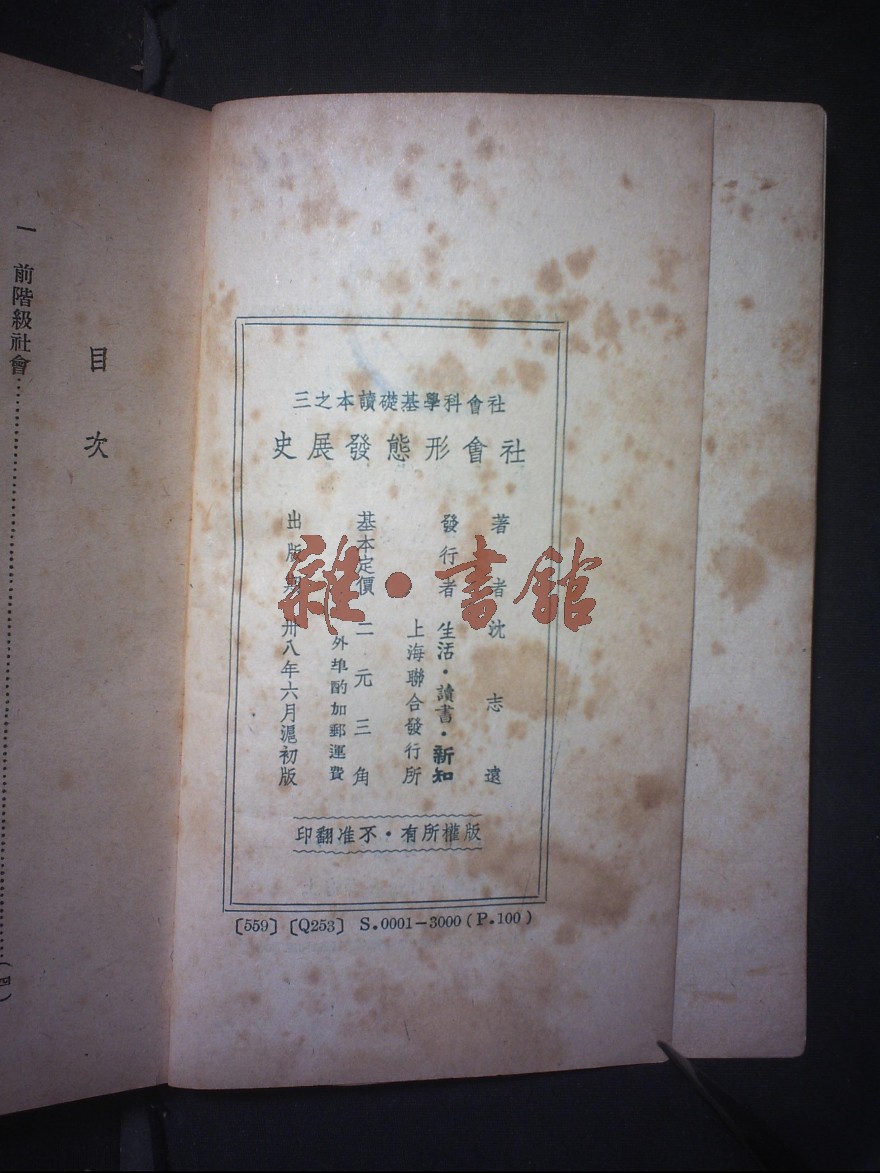 社會科學基礎讀本之三
社會形態發展史
著者 沈志遠
發行者 生活·讀書·新知
上海聯合發行所
基本定價 二元三角
外埠酌加郵運費
出版期 卅八年六月滬初版
版權所有·不准翻印
〔559〕〔Q253〕 S.0001－3000(P.100)
目次
一 前階級社會……(四)
雜·書館